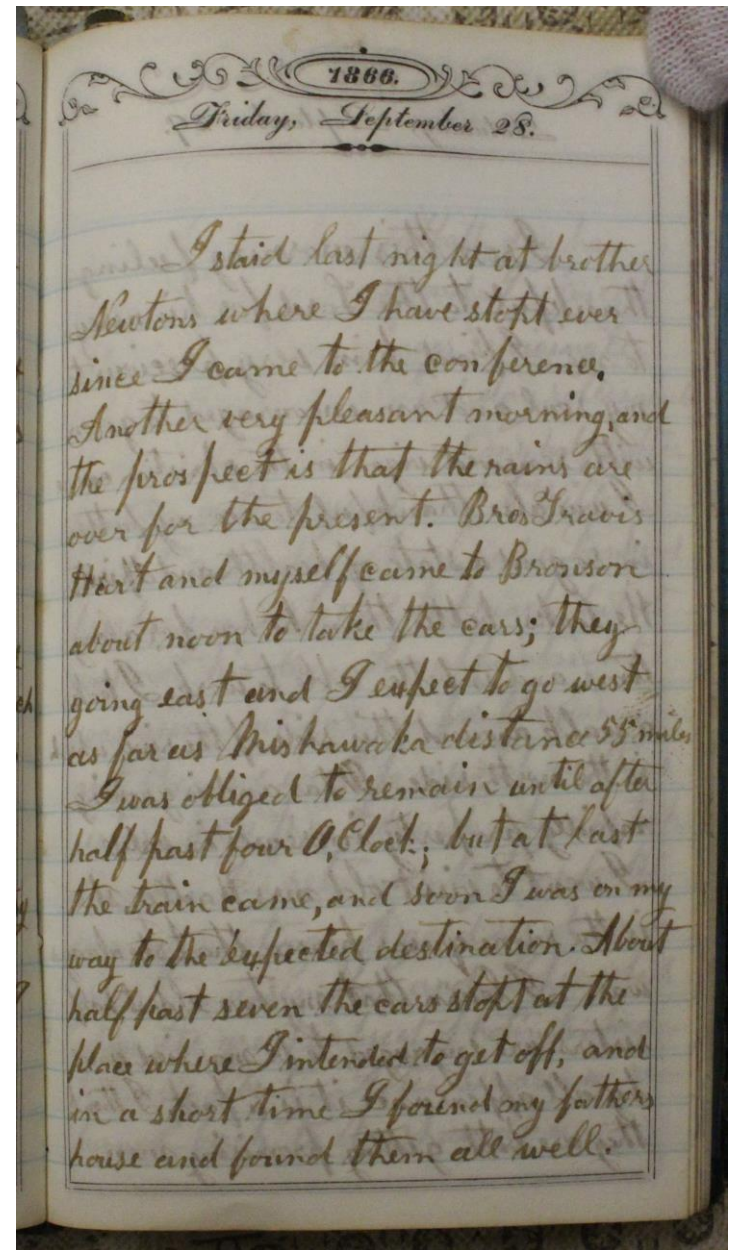 1866.
Friday, September 28.
I staid last night at brother
Newtons where I have stopt ever
since I came to the conference.
Another very pleasant morning, and
the prospect is that the rains are
over for the present. Bros Travis
Hart and myself came to Bronson
about noon to take the cars; they
going east and I expect to go west
as far as Mishawaka distance 55 miles
I was obliged to remain until after
half past four O,Clock; but at last
the train came, and soon I was on my
way to the expected destination. About
half past seven the cars stopt at the
place where I intended to get off, and
in a short time I found my fathers
house and found them all well.